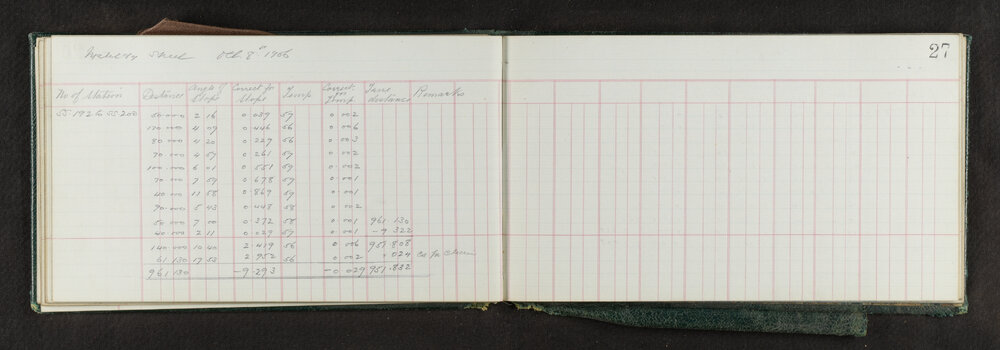 Street Oct 8th 1906
27
No of Station Distance Angle of Slope Correct for Slope Temp Correct. for Temp True distance Remarks
55.192 to 55.200 50.000 2 16 0.039 59 0.002
120.000 4 09 0.446 56 0.006
80.000 4 20 0.229 56 0.003
70.000 4 59 0.261 59 0.002
100.000 6 01 0.551 59 0.002
70.000 7 59 0.678 59 0.001
40.000 11 58 0.869 59 0.001
90.000 5 43 0.448 58 0.002
50.000 7 00 0.372 58 0.001 961.130
40.000 2 11 0.029 57 0.001 -9.322
140.000 10 40 2.419 56 0.006 951.808
61.130 17 53 2.952 56 0.002 0.024
961.130 -9.293 -0.029 951.832